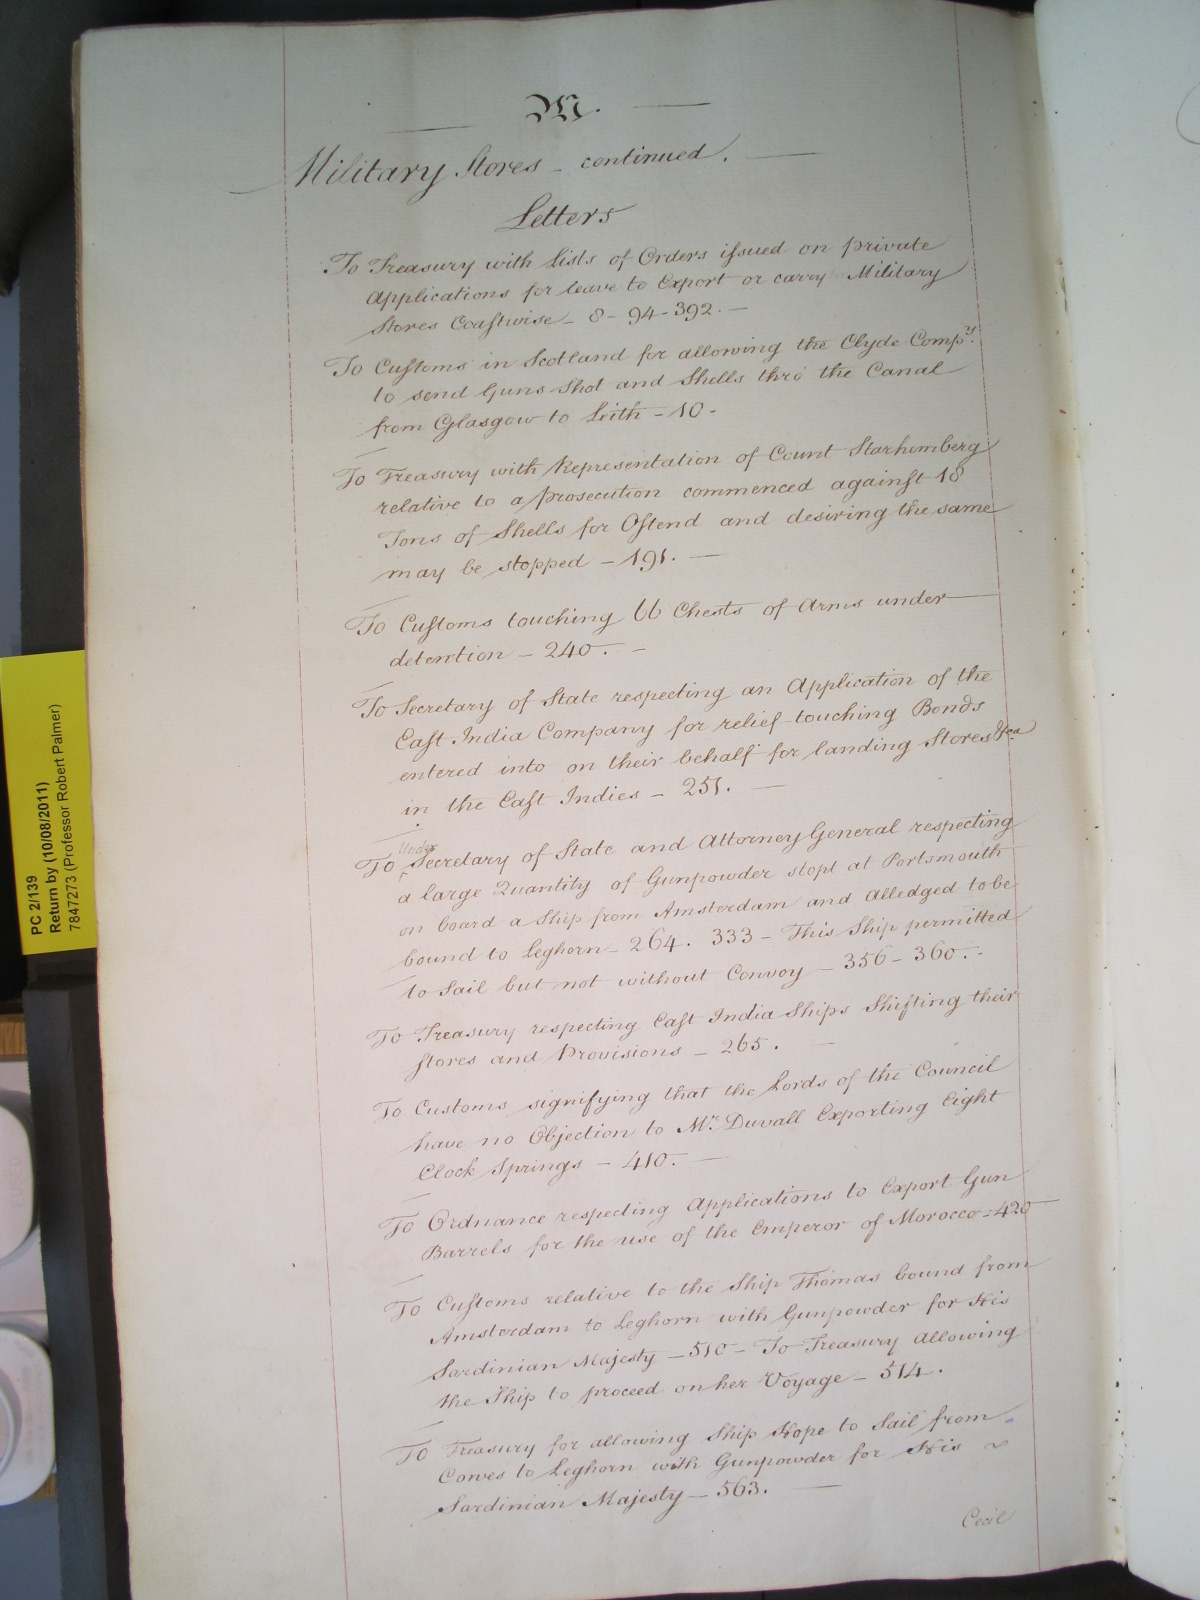 M.
Military Stores - continued.
Letters
To Treasury with lists of Orders issued on private
Applications for leave to Export or carry Military
Stores Coastwise - 8 - 94 - 392. -
To Customs in Scotland for allowing the Clyde Compy.
to send Guns Shot and Shells thro' the Canal
from Glasgow to Leith - 10 -
To Treasury with Representation of Count Starhemberg
relative to a prosecution commenced against 18
Tons of Shells for Ostend and desiring the same
may be stopped - 191. -
To Customs touching 66 Chests of Arms under
detention - 240. -
To Secretary of State respecting an Application of the
East India Company for relief touching Bonds
entered into on their behalf for landing Stores &ca
in the East Indies - 251. -
Under
To Secretary of State and Attorney General respecting
a large Quantity of Gunpowder stopt at Portsmouth
on board a Ship from Amsterdam and Alledged to be
bound to Leghorn - 264. 333 - This Ship permitted
to Sail but not without Convoy - 356 - 360. -
To Treasury respecting East India Ships Shifting their
Stores and Provisions - 265. -
To Customs signifying that the Lords of the Council
have no Objection to Mr. Duvall Exporting Eight
Clock Springs - 410. -
To Ordnance respecting Applications to Export Gun
Barrels for the use of the Emperor of Morocco - 420
To Customs relative to the Ship Thomas bound from
Amsterdam to Leghorn with Gunpowder for His
Sardinian Majesty - 510 - To Treasury allowing
the Ship to proceed on her Voyage - 514.
To Treasury for allowing Ship Hope to Sail from
Cowes to Leghorn with Gunpowder for His
Sardinian Majesty - 563. -
Cecil
PC 2/139
Return by (10/08/2011)
7847273 (Professor Robert Palmer)